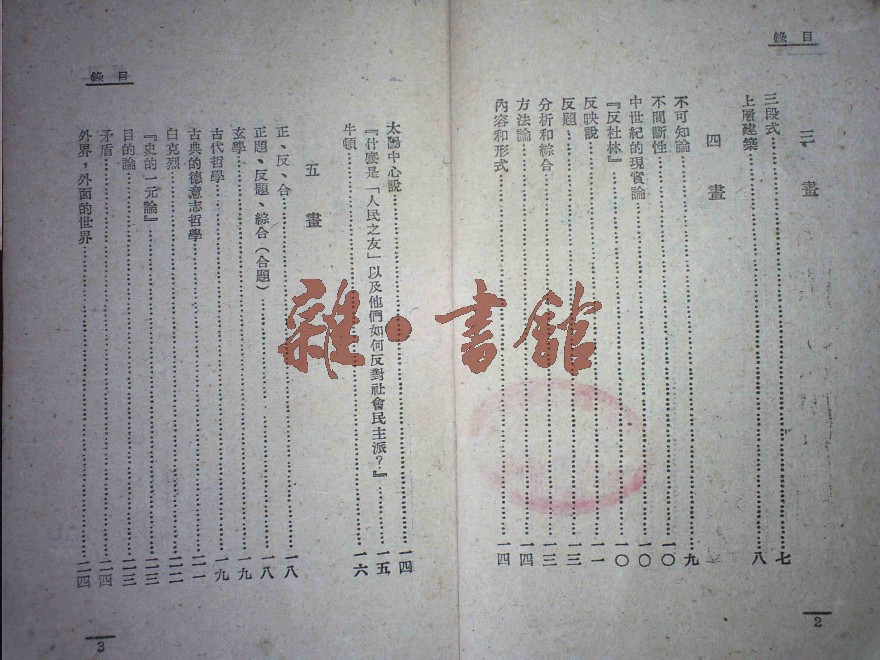 目錄
三畫
三段式……七
上層建築……八
四畫
不可知論……九
不間斷性……一〇
中世紀的現實論……一〇
『反杜林』……一〇
反映說……一一
反題……一三
分析和綜合……一三
方法論……一四
內容和形式……一四
2
目錄
太陽中心說……一四
『什麼是「人民之友」以及他們如何反對社會民主派?』……一五
牛頓……一六
五畫
正、反、合……一八
正題、反題、綜合(合題)……一八
玄學……一九
古代哲學……一九
古典的德意志哲學……二一
白克烈……二二
『史的一元論』……二三
目的論……二三
矛盾……二四
外界,外面的世界……二四
3
雜·書館